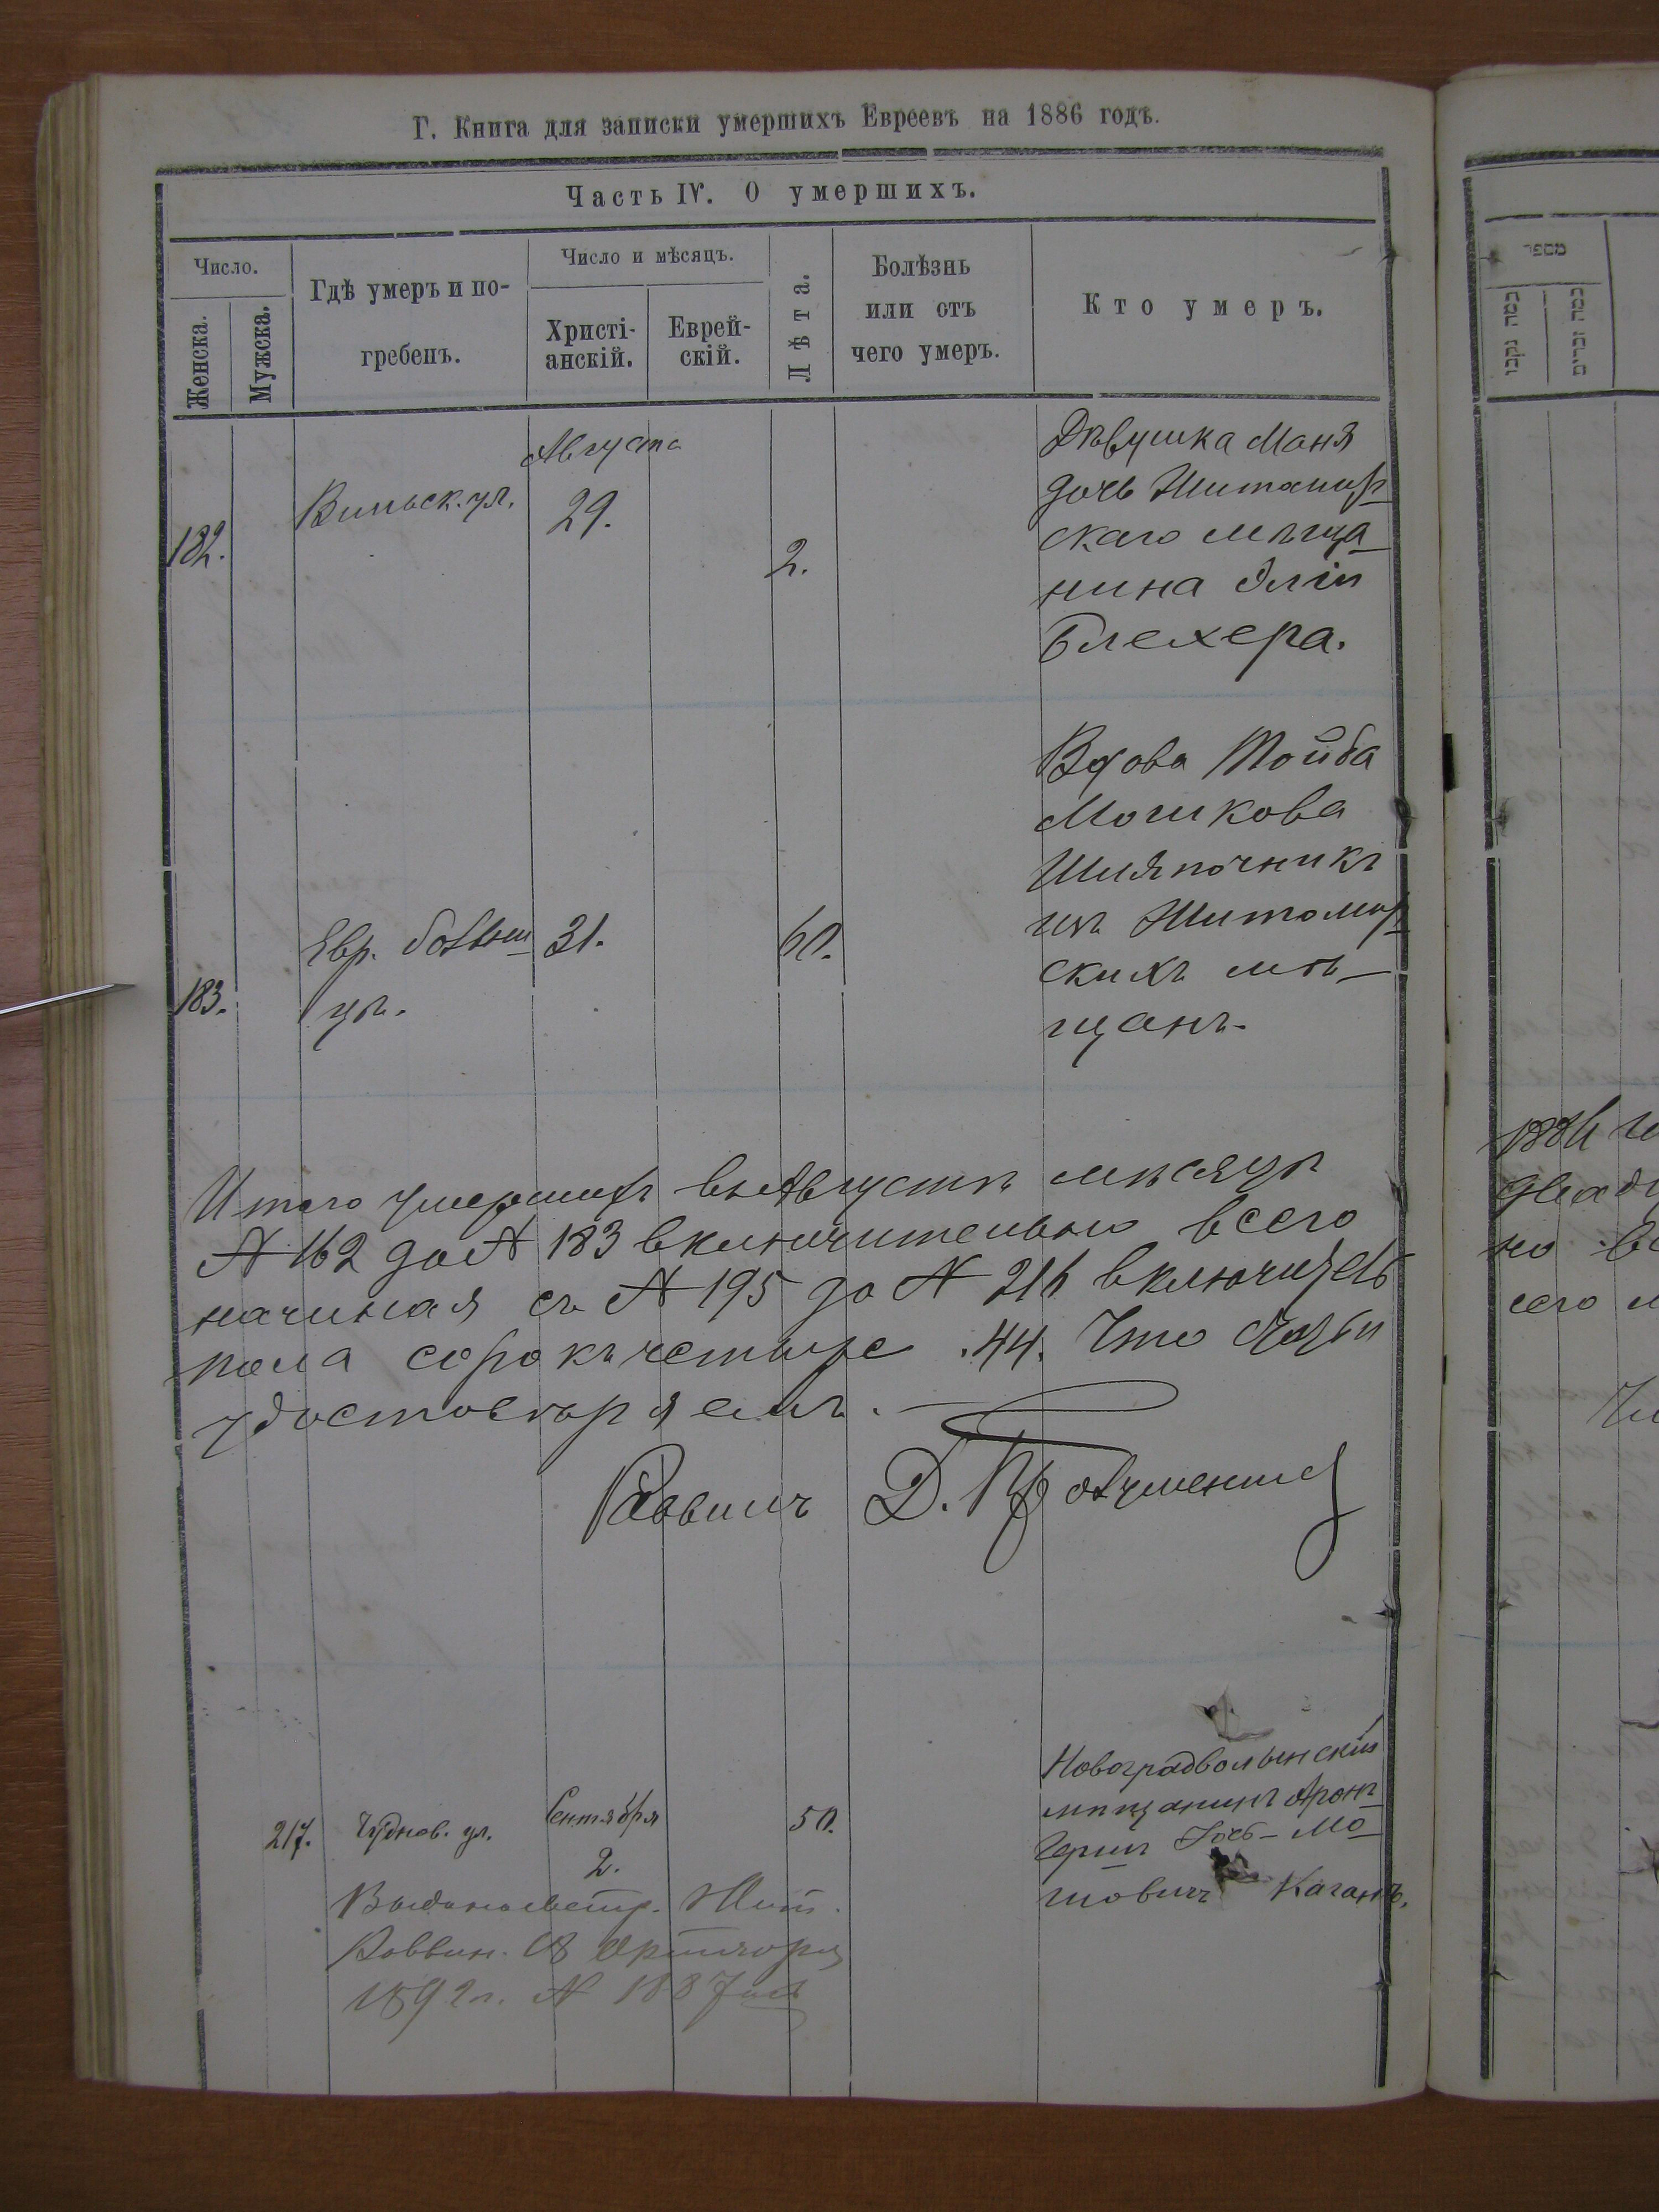 Г. Книга для записки умершихъ Евреевъ на 1886 годъ.
Часть IV. О умершихъ.
Число.
Женска.
Мужска.
Гдѣ умеръ и по-
гребенъ.
Число и мѣсяцъ.
Христі-
анскій.
Еврей-
скій.
Лѣта.
Болѣзнь
или отъ
чего умеръ.
Кто умеръ.
182.
Вильск. ул.
Августа
29.
2.
Дѣвушка Маня
дочь Житомир-
скаго мѣща-
нина Эліи
Блехера.
183.
Евр. больни-
цѣ.
31.
60.
Вдова Тойба
Мошкова
Шляпочникъ
изъ Житомир-
скихъ мѣ-
щанъ.
Итого умершихъ въ Августѣ мѣсяцѣ
№ 162 до № 183 включительно всего
начиная съ № 195 до № 216 включитель
пола сорокъ четыре .44. Что
удостовѣряемъ.
Раввинъ Д.
217.
Чуднов. ул.
Сентября
2.
50.
Новоградволынскій
мѣщанинъ Аронъ
Гершъ Мо-
шовичъ Каганъ.
Выдана метр. Жит.
Раввин. 18
1892 г. № 1887
מספר
1886